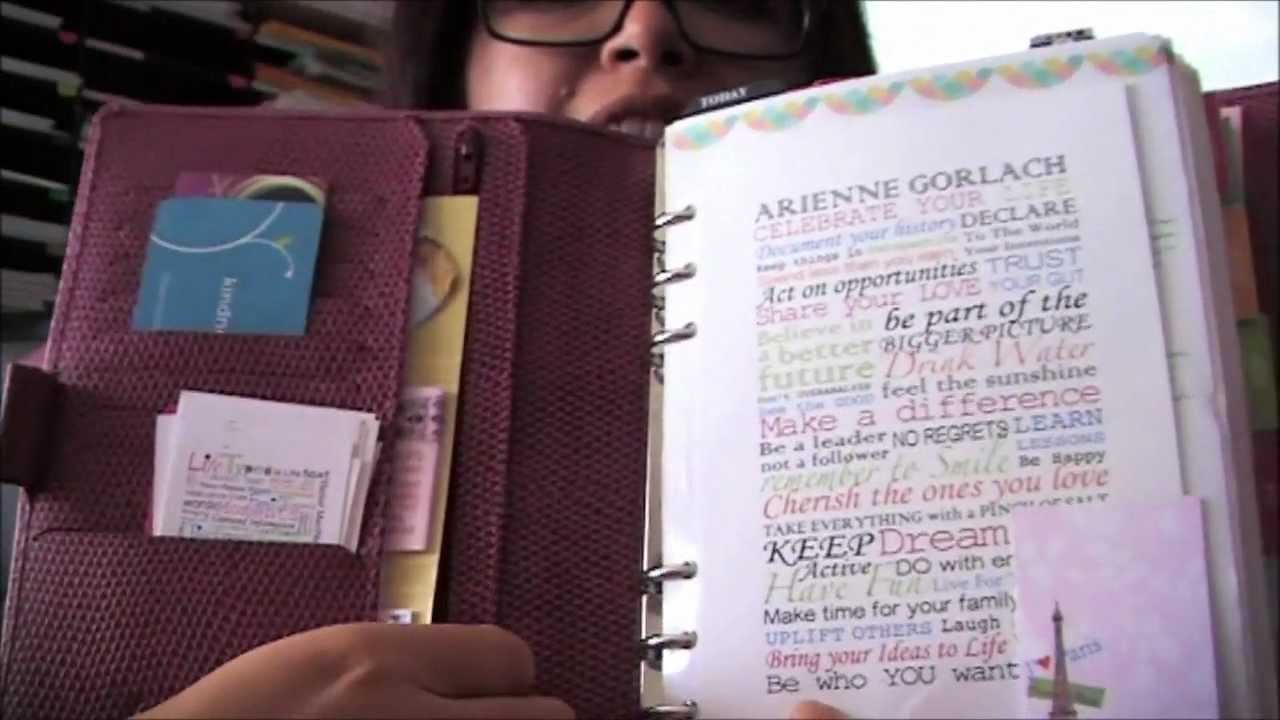 TODAY
ARIENNE GORLACH
CELEBRATE YOUR LIFE
Document your history DECLARE
Keep things in To The World
Your Intentions
Act on opportunities TRUST
YOUR GUT
Share your LOVE
Believe in be part of the
a better BIGGER PICTURE
future Drink Water
DON'T OVERANALYZE feel the sunshine
see the GOOD
Make a difference
Be a leader NO REGRETS LEARN
not a follower LESSONS
remember to Smile Be Happy
Cherish the ones you love
TAKE EVERYTHING with a PINCH OF SALT
KEEP Dream
Active DO with
Have Fun Live For
Make time for your family
UPLIFT OTHERS Laugh
Bring your Ideas to Life
Be who YOU want
Paris
kindn